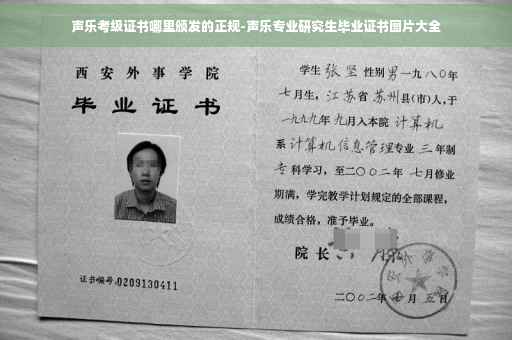 声乐考级证书哪里颁发的正规-声乐专业研究生毕业证书图片大全
西安外事学院
毕业证书
证书编号:0209130411
学生 张坚 性别男 一九八〇年
七月生，江苏省 苏州县(市)人,于
一九九九年 九月入本院 计算机
系 计算机信息管理专业 三 年制
专科学习，至二〇〇二年 七月修业
期满，学完教学计划规定的全部课程，
成绩合格，准予毕业。
院长
二〇〇二年 月 五日